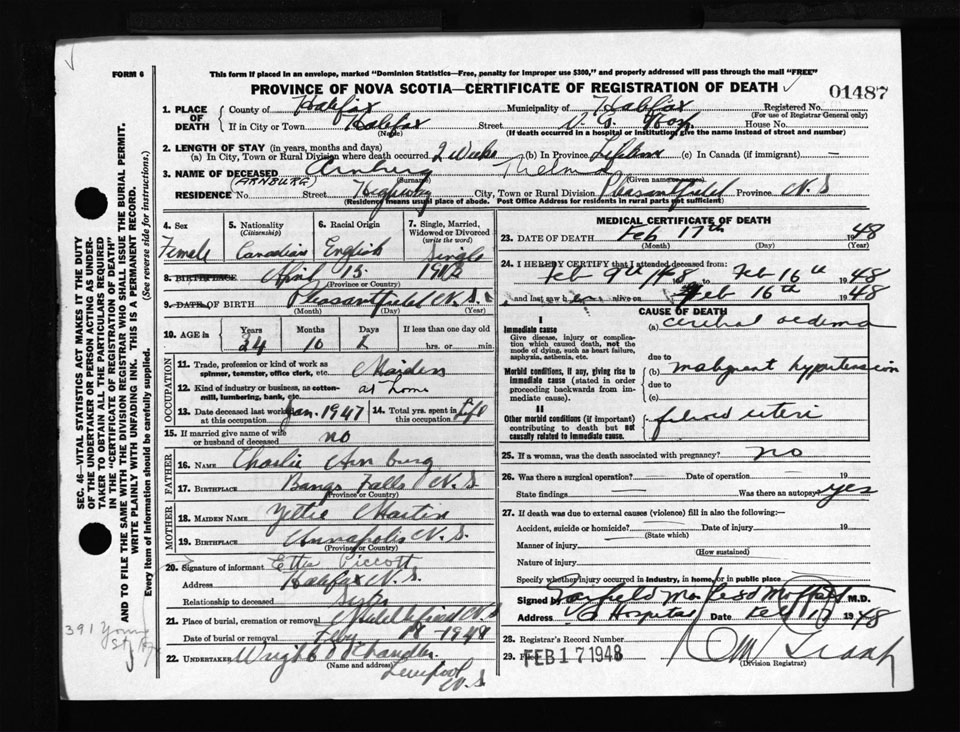 FORM 6
This form if placed in an envelope, marked "Dominion Statistics—Free, penalty for improper use $300," and properly addressed will pass through the mail "FREE"
PROVINCE OF NOVA SCOTIA—CERTIFICATE OF REGISTRATION OF DEATH
01487
1. PLACE OF DEATH
County of Halifax Municipality of Halifax Registered No.
(For use of Registrar General only)
If in City or Town Halifax Street V. G. Hos House No.
(Name) (If death occurred in a hospital or institution, give the name instead of street and number)
2. LENGTH OF STAY (in years, months and days)
(a) In City, Town or Rural Division where death occurred 2 Weeks (b) In Province Lifetime (c) In Canada (if immigrant) —
3. NAME OF DECEASED Arnburg Thelma
(ARNBURG) (Surname) (Given names)
RESIDENCE No. Street Highway City, Town or Rural Division Pleasantfield Province N.S
(Residence means usual place of abode. Post Office Address for residents in rural parts not sufficient)
4. Sex
Female
5. Nationality
(Citizenship)
Canadian
6. Racial Origin
English
7. Single, Married, Widowed or Divorced
(write the word)
Single
8. BIRTHPLACE April 15
(Province or Country)
9. DATE OF BIRTH Pleasantfield N.S.
(Month) (Day) (Year)
10. AGE in
Years Months Days If less than one day old
10 2 hrs. or min.
OCCUPATION
11. Trade, profession or kind of work as spinner, teamster, office clerk, etc.
12. Kind of industry or business, as cotton-mill, lumbering, bank, etc. at home
13. Date deceased last worked at this occupation Jan. 1947
14. Total yrs. spent in this occupation Life
15. If married give name of wife or husband of deceased no
FATHER
16. NAME Charlie Arnburg
17. BIRTHPLACE Bangs Falls N.S
(Province or Country)
MOTHER
18. MAIDEN NAME Martin
19. BIRTHPLACE Annapolis N.S.
(Province or Country)
20. Signature of informant Etta Piccott
Address Halifax N.S.
Relationship to deceased Sister
21. Place of burial, cremation or removal Middlefield N.S
Date of burial or removal Feby
22. UNDERTAKER Wright Chandler
(Name and address)
Liverpool
N.S
MEDICAL CERTIFICATE OF DEATH
23. DATE OF DEATH Feb 17th 1948
(Month) (Day) (Year)
24. I HEREBY CERTIFY that I attended deceased from:
Feb 9th 1948 Feb 16th 1948
and last saw her alive on Feb 16th 1948
CAUSE OF DEATH
I
Immediate cause
Give disease, injury or complication which caused death, not the mode of dying, such as heart failure, asphyxia, asthenia, etc.
(a) cerebral oedema
due to
Morbid conditions, if any, giving rise to immediate cause (stated in order proceeding backwards from immediate cause).
(b) malignant hypertension
due to
(c)
II
Other morbid conditions (if important) contributing to death but not causally related to immediate cause.
fibroid uteri
25. If a woman, was the death associated with pregnancy? no
26. Was there a surgical operation? Date of operation 19
State findings Was there an autopsy? yes
27. If death was due to external causes (violence) fill in also the following:—
Accident, suicide or homicide? Date of injury 19
(State which)
Manner of injury
(How sustained)
Nature of injury
Specify whether injury occurred in industry, in home, or in public place
Signed by Garfield M.D.
Address VG Hospital Date Feb 17 1948
28. Registrar's Record Number
29. Filed FEB 17 1948
(Division Registrar)
SEC. 46—VITAL STATISTICS ACT MAKES IT THE DUTY
OF THE UNDERTAKER OR PERSON ACTING AS UNDERTAKER TO OBTAIN ALL THE PARTICULARS REQUIRED
IN THE "CERTIFICATE OF REGISTRATION OF DEATH"
AND TO FILE THE SAME WITH THE DIVISION REGISTRAR WHO SHALL ISSUE THE BURIAL PERMIT.
WRITE PLAINLY WITH UNFADING INK. THIS IS A PERMANENT RECORD.
Every item of information should be carefully supplied. (See reverse side for instructions.)
391 Young
St